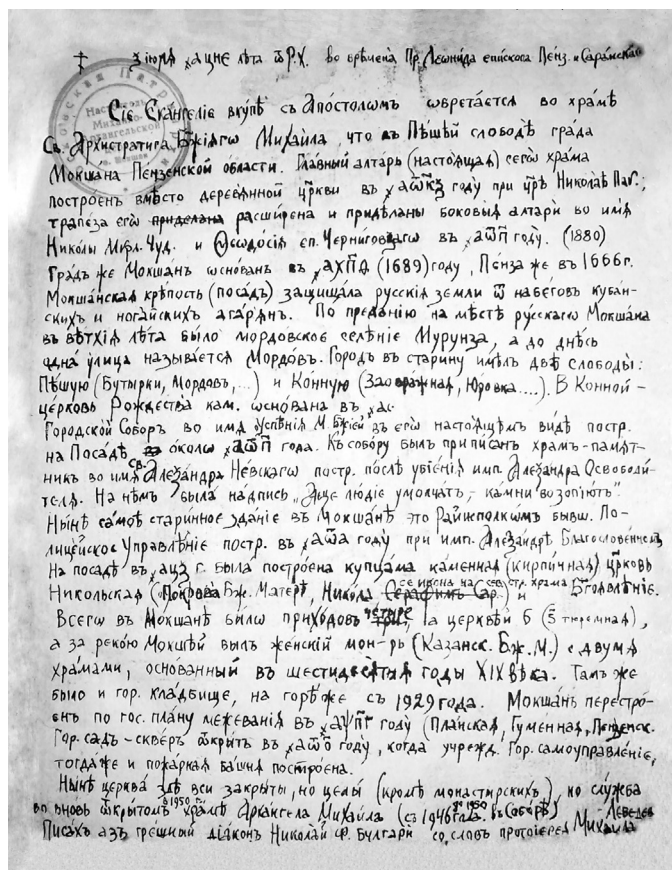 іюля ҂ацне лѣта ѿ Р.Х. во времена Пр. Леонида епископа Пенз. и Саранскаго
Сіе Евангеліе вкупѣ съ Апостоломъ ѡбретается во храмѣ
Св. Архистратига Бжіягѡ Михаила, что въ Пѣшей слободѣ града
Мокшана Пензенской области. Главный алтарь (настоящая) сегѡ храма
построенъ вмѣсто деревянной цркви въ ҂аѿкз году при црѣ Николаѣ Пав.;
трапеза егѡ придѣлана расширена и придѣланы боковыя алтари во имя
Николы Мѵрл. Чуд. и Ѳеодосія еп. Черниговскаго въ ҂аѿп году. (1880)
Градъ же Мокшанъ ѡснованъ въ ҂ахпѳ (1689) году, Пенза же въ 1666 г.
Мокшанская крѣпость (посадъ) защищала русскія земли ѿ набѣгов кубан-
скихъ и ногайскихъ агарянъ. По преданію на мѣстѣ русскагѡ Мокшана
въ вѣтхія лѣта было мордовское селѣніе Мурунза, а до днѣсь
ѡдна улица называется Мордов. Городъ въ старину имѣлъ двѣ слободы:
Пѣшую (Бутырки, Мордовъ, ...) и Конную (Заовражная, Юровка ....). В Конной -
церковь Рождества кам. ѡснована въ ҂ас
Городской Соборъ во имя Успѣнія М. Бжіей въ егѡ настоящемъ видѣ постр.
на Посадѣ ѡколо ҂аѿп года. Къ собору былъ приписанъ храмъ-памят-
никъ во имя св. Алеѯандра Нѣвскагѡ постр. послѣ убіенія имп. Алеѯандра Освободи-
теля. На нѣмъ была надпись „Аще людіе умолчатъ, - камни возопіютъ".
Нынѣ самоѣ старинное зданіе въ Мокшанѣ это Райисполкомъ бывш. По-
лицейское Управлѣніе постр. въ ҂аѿа году при имп. Алеѯандрѣ Благословенном
На посадѣ въ ҂ацз г. была построена купцами каменная (кирпичная) црковь
Никольская (Покрова Бж. Матерѣ, Никола Серафимъ Сар.) и Бгоявлѣніе.
се икона на сев. стр. храма
Всегѡ въ Мокшанѣ былѡ приходовъ четыре, а церквѣй 6 (ѕ тюремная),
а за рекою Мокшѣй былъ женскій мон-рь (Казанск. Бж. М.) с двумя
храмами, основанный въ шестидесятыя годы XIX вѣка. Тамъ же
было и гор. кладбище, на горѣ же съ 1929 года. Мокшанъ перестро-
енъ по гос. плану межеванія въ ҂аѱпг году (Плайская, Гуменная, Пензенск.
Гор. садъ - скверъ ѿкрытъ въ ҂аѿо году, когда учрежд. Гор. самоуправленіе,
тогда же и пожарная башня построена.
Нынѣ церква здѣ вси закрыты, но целы (кромѣ монастирскихъ), но служба
во вновь ѿкрытомъ в 1950 г. храмѣ Архангела Михаила (съ 1946 года до 1950 въ Соборѣ)
Писахъ азъ грешный діаконъ Николай Ф. Булгари со словъ протоіерея Михаила Лебедев